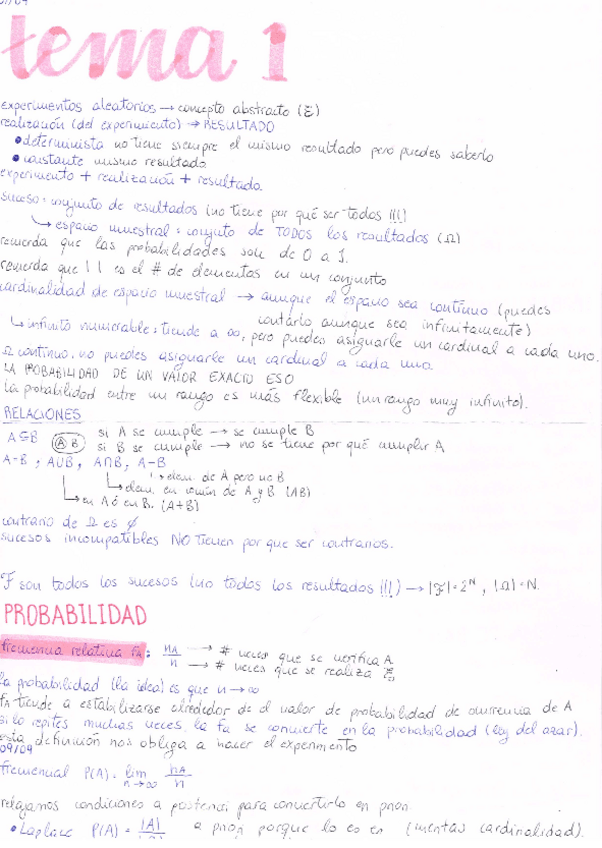 tema 1
experimentos aleatorios → concepto abstracto (ξ)
realización (del experimento) → RESULTADO
• determinista no tiene siempre el mismo resultado pero puedes saberlo
• constante mismo resultado.
experimento + realización + resultado.
suceso: conjunto de resultados (no tiene por qué ser todos !!!)
↳ espacio muestral: conjuto de TODOS los resultados (Ω)
recuerda que las probabilidades son de 0 a 1.
recuerda que | | es el # de elementos en un conjunto
cardinalidad de espacio muestral → aunque el espacio sea contínuo (puedes
contarlo aunque sea infinitamente)
↳ infinito numerable: tiende a ∞, pero puedes asignarle un cardinal a cada uno.
Ω contínuo, no puedes asignarle un cardinal a cada uno.
LA PROBABILIDAD DE UN VALOR EXACTO ES 0
La probabilidad entre un rango es más flexible (un rango muy infinito).
RELACIONES
A⊆B (A B) si A se cumple → se cumple B
si B se cumple → no se tiene por qué cumplir A
A=B, A∪B, A∩B, A-B
↳ elem. de A pero no B
↳ elem. en común de A y B (AB)
↳ en A ó en B. (A+B)
contrario de Ω es ∅
sucesos incompatibles NO tienen por que ser contrarios.
F son todos los sucesos (no todos los resultados !!!) → |F| = 2^N, |Ω| = N.
PROBABILIDAD
frecuencia relativa fA: nA/n → # veces que se verifica A
→ # veces que se realiza ξ
la probabilidad (la idea) es que n → ∞
fA tiende a estabilizarse alrededor de el valor de probabilidad de ocurrencia de A
si lo repites muchas veces, la fA se convierte en la probabilidad (ley del azar).
esta definición nos obliga a hacer el experimento
09/09
frecuencial P(A) = lim n→∞ nA/n
relajamos condiciones a posteriori para convertirlo en priori.
• Laplace P(A) = |A| a priori porque lo es en (mientas cardinalidad).